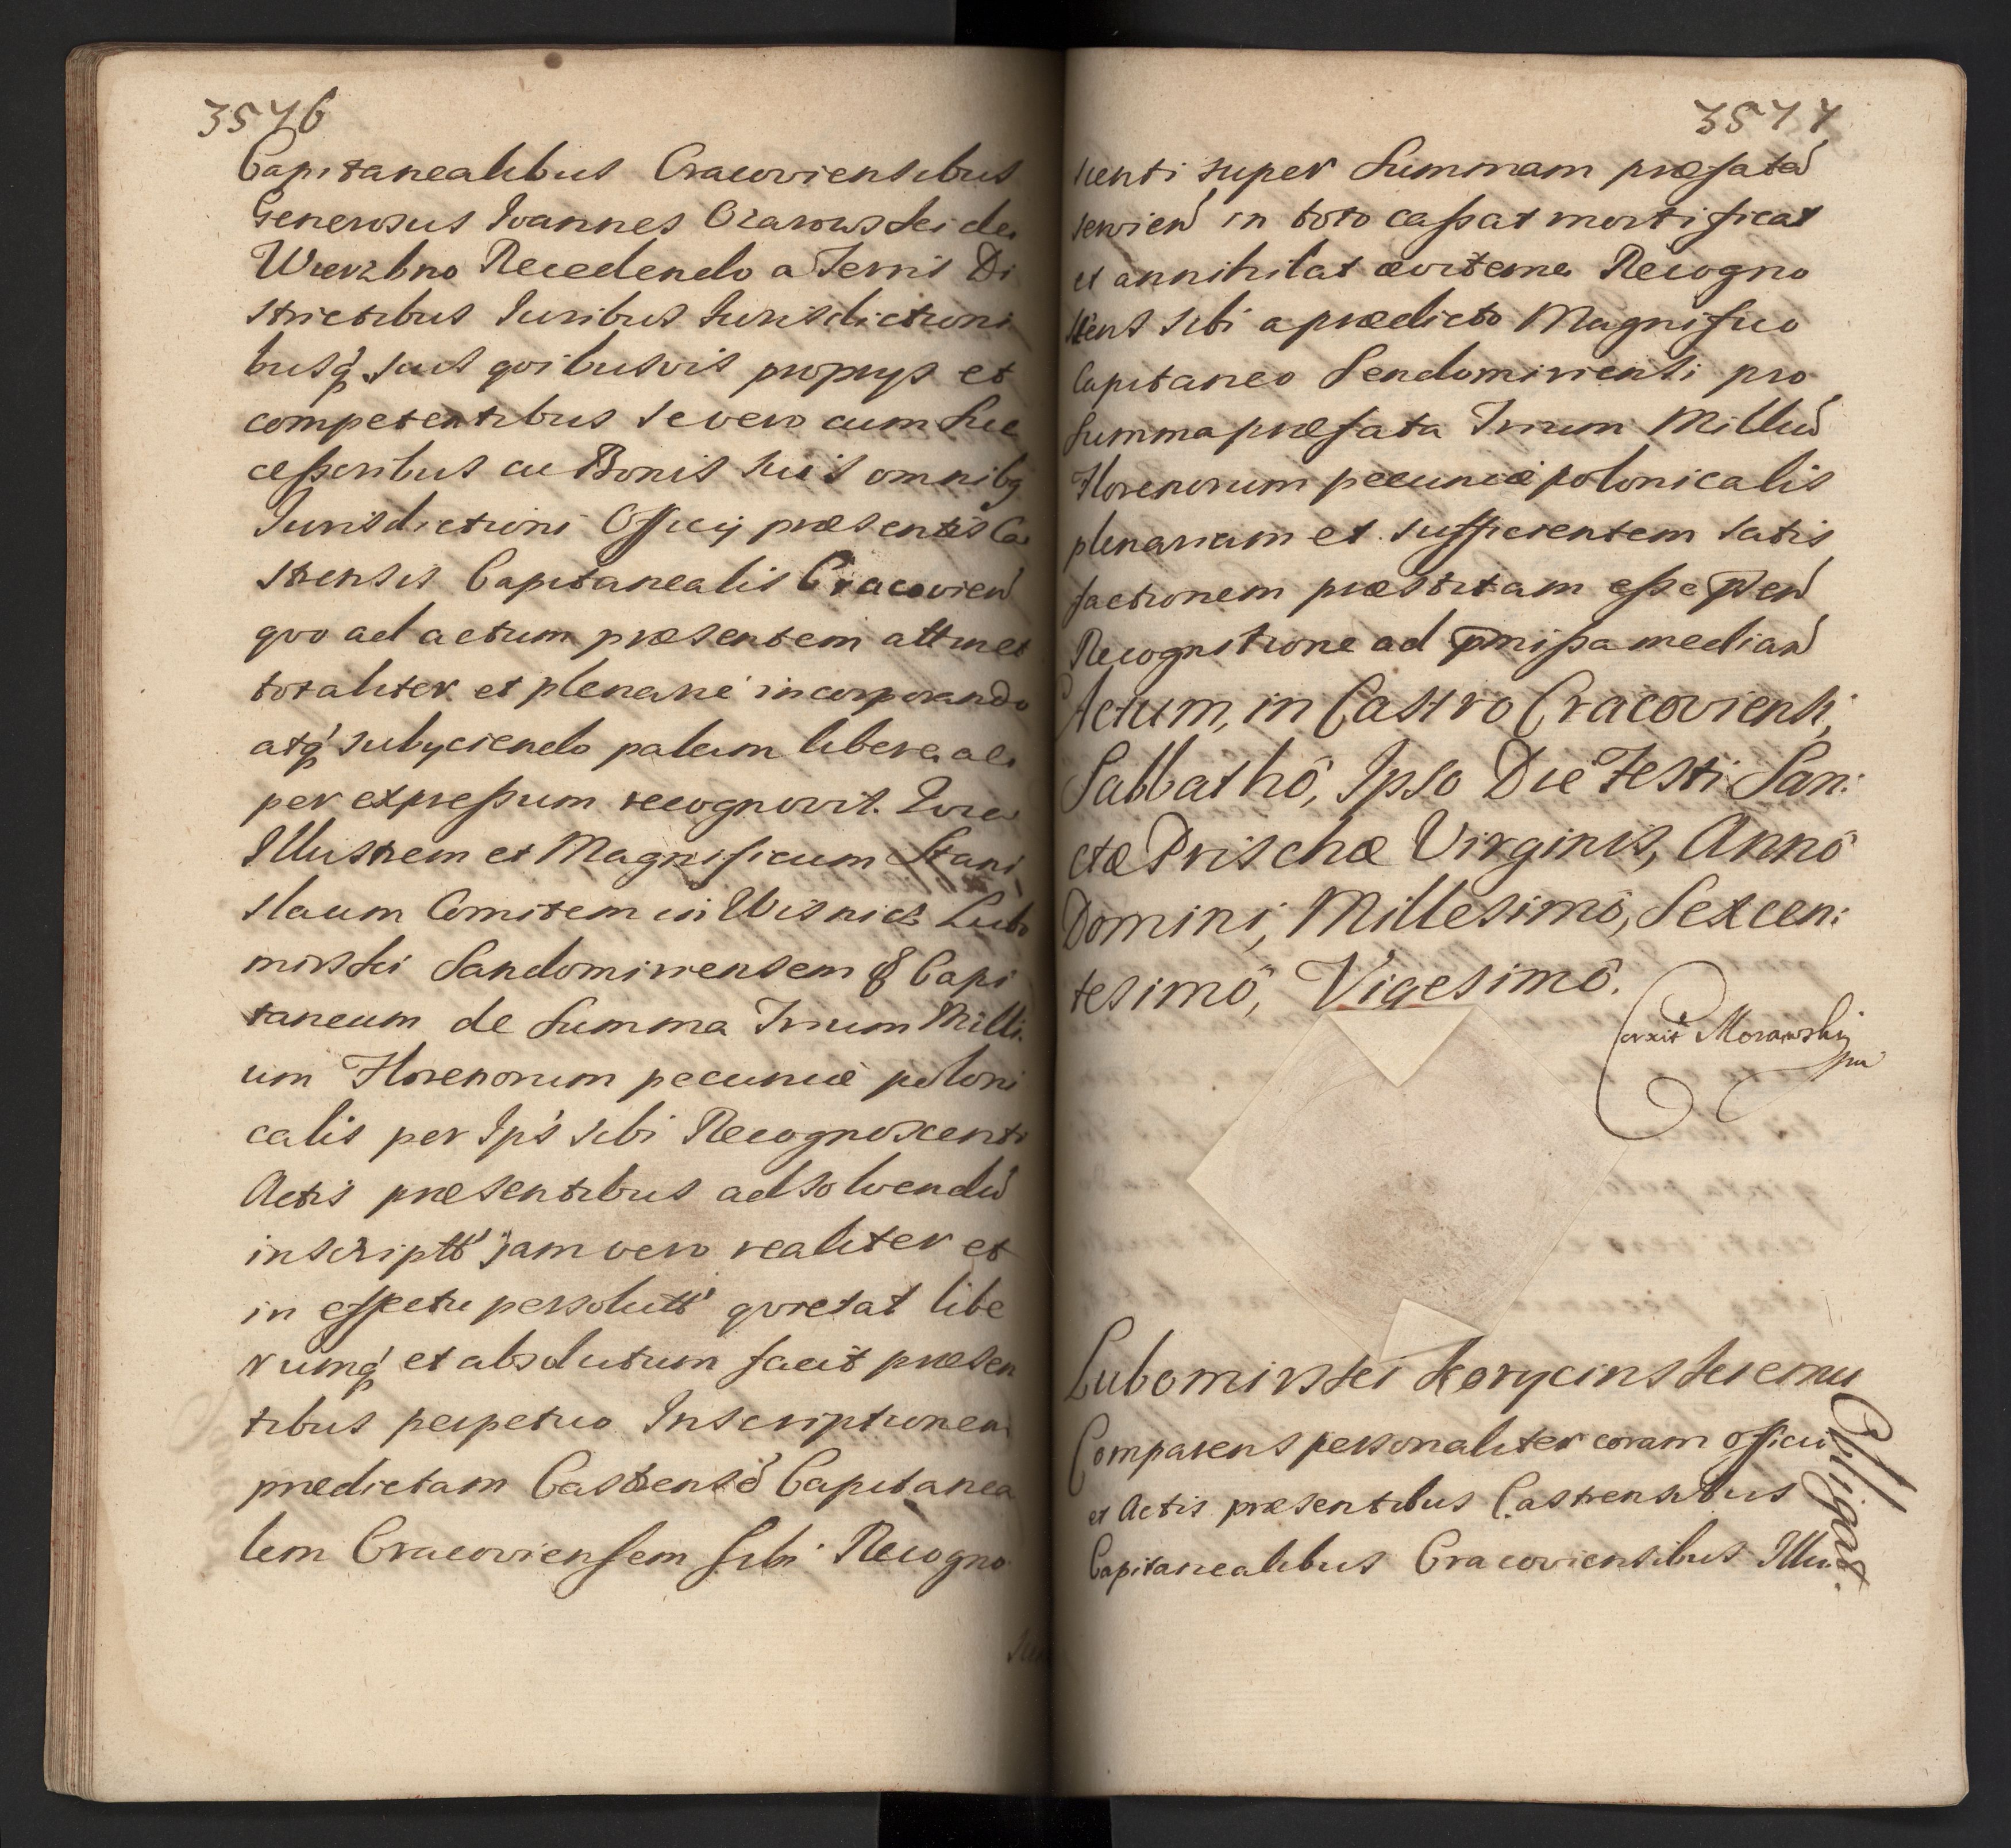 3576
Capitanealibus Cracoviensibus
Generosus Ioannes Ozarowski de
Wierzbno Recedendo a Terris Di
strictibus Iuribus Iurisdictioni
busq́ suis qvibusvis proprys et
competentibus se vero cum suc
ceßoribus ac Bonis suis omnibq
Iurisdictioni Officij præsentis Ca
strensis Capitanealis Cracovień
qvo ad actum præsentem attinet
totaliter et plenarie incorporando
atq́ subyciendo palam libere ac
per expreßum recognovit. Qvia
Illustrem et Magnificum Stani
slaum Comitem in Wisnicz Lubo
mirski Sandomiriensem & Capi
taneum de Summa Trium Milli
um Florenorum pecuniæ poloni
calis per Ips sibi Recognoscenti
Actis præsentibus adsolvendū
inscriptt́ jam vero realiter et
in effectu persolutt́ qvietat libe
rumq́ et absolutum facit præsen
tibus perpetuo Inscriptionem
prædictam Castrensē Capitanea
lem Cracoviensem sibi Recogno
3577
scenti super Summam præfatā
servień in toto caßat mortificat
et annihilat æviterne Recogno
scens sibi a prædicto Magnifico
Capitaneo Sendomiriensi pro
Summa præfata Trium Milliū
Florenorum pecuniæ polonicalis
plenariam et sufficientem satis
factionem præstitam eße Pñ
Recognitione ad pmißa medianṫ
Actum, in Castro Cracoviensi,
Sabbathô, Ipso Die Festi San:
ctæ Prischæ Virginis, Annô
Domini, Millesimô, Sexcen:
tesimô, Vigesimô.
Corxit Morawskj
mp
Lubomirski Korycinskiemu
Obligat.
Comparens personaliter coram officio
et Actis præsentibus Castrensibus
Capitanealibus Cracoviensibus Illu: